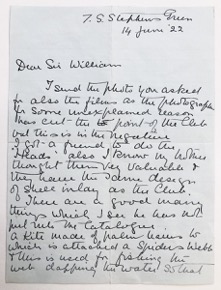 7. S. Stephens Green
14 June '22
Dear Sir William
I send the photo you asked
for also the films as the photographer
for some unexplained reason
has cut the point of the Club
but this is in the negative
I got a friend to do the
Heads, also I know my mother
thought them very valuable &
they have the same design
of shell inlay as the Club.
There are a good many
things which I see he has not
put into the Catalogue.
A Kite made of palm leaves to
which is attached a Spiders Webb
& this is used for fishing the
web dapping the water so that